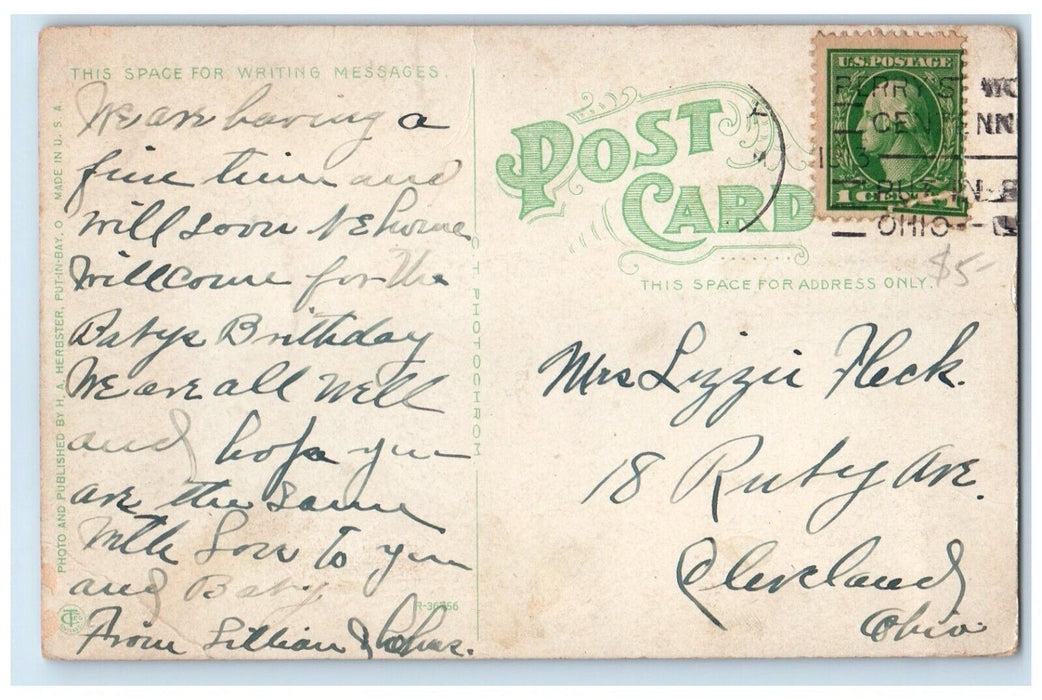 THIS SPACE FOR WRITING MESSAGES.
We are having a
fine time and
will soon be home
Will come for the
Babys Brithday
We are all well
and hope you
are the same
With Love to you
and Baby
From Lillian &
PHOTO AND PUBLISHED BY H. A. HERBSTER, PUT-IN-BAY, O. MADE IN U. S. A.
C. T. PHOTOCHROM
R-36756
POST
CARD
THIS SPACE FOR ADDRESS ONLY.
U.S. POSTAGE
1 CENT 1
PERRY'S
CEN ENN
PUT-IN-B
OHIO
$5-
Mrs Lizzie Fleck.
18 Ruby Ave.
Cleveland
Ohio